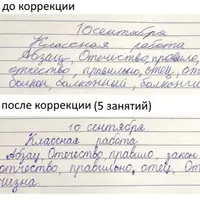 до коррекции
10 сентября
Классная работа
Абзац, Отечество, правило,
отечество, правильно, отец, от
балкон, балконный, балконы
после коррекции (5 занятий)
10 сентября
Классная работа
Абзац, Отечество, правило, закон
отчество, правильно, отец, От
чизна